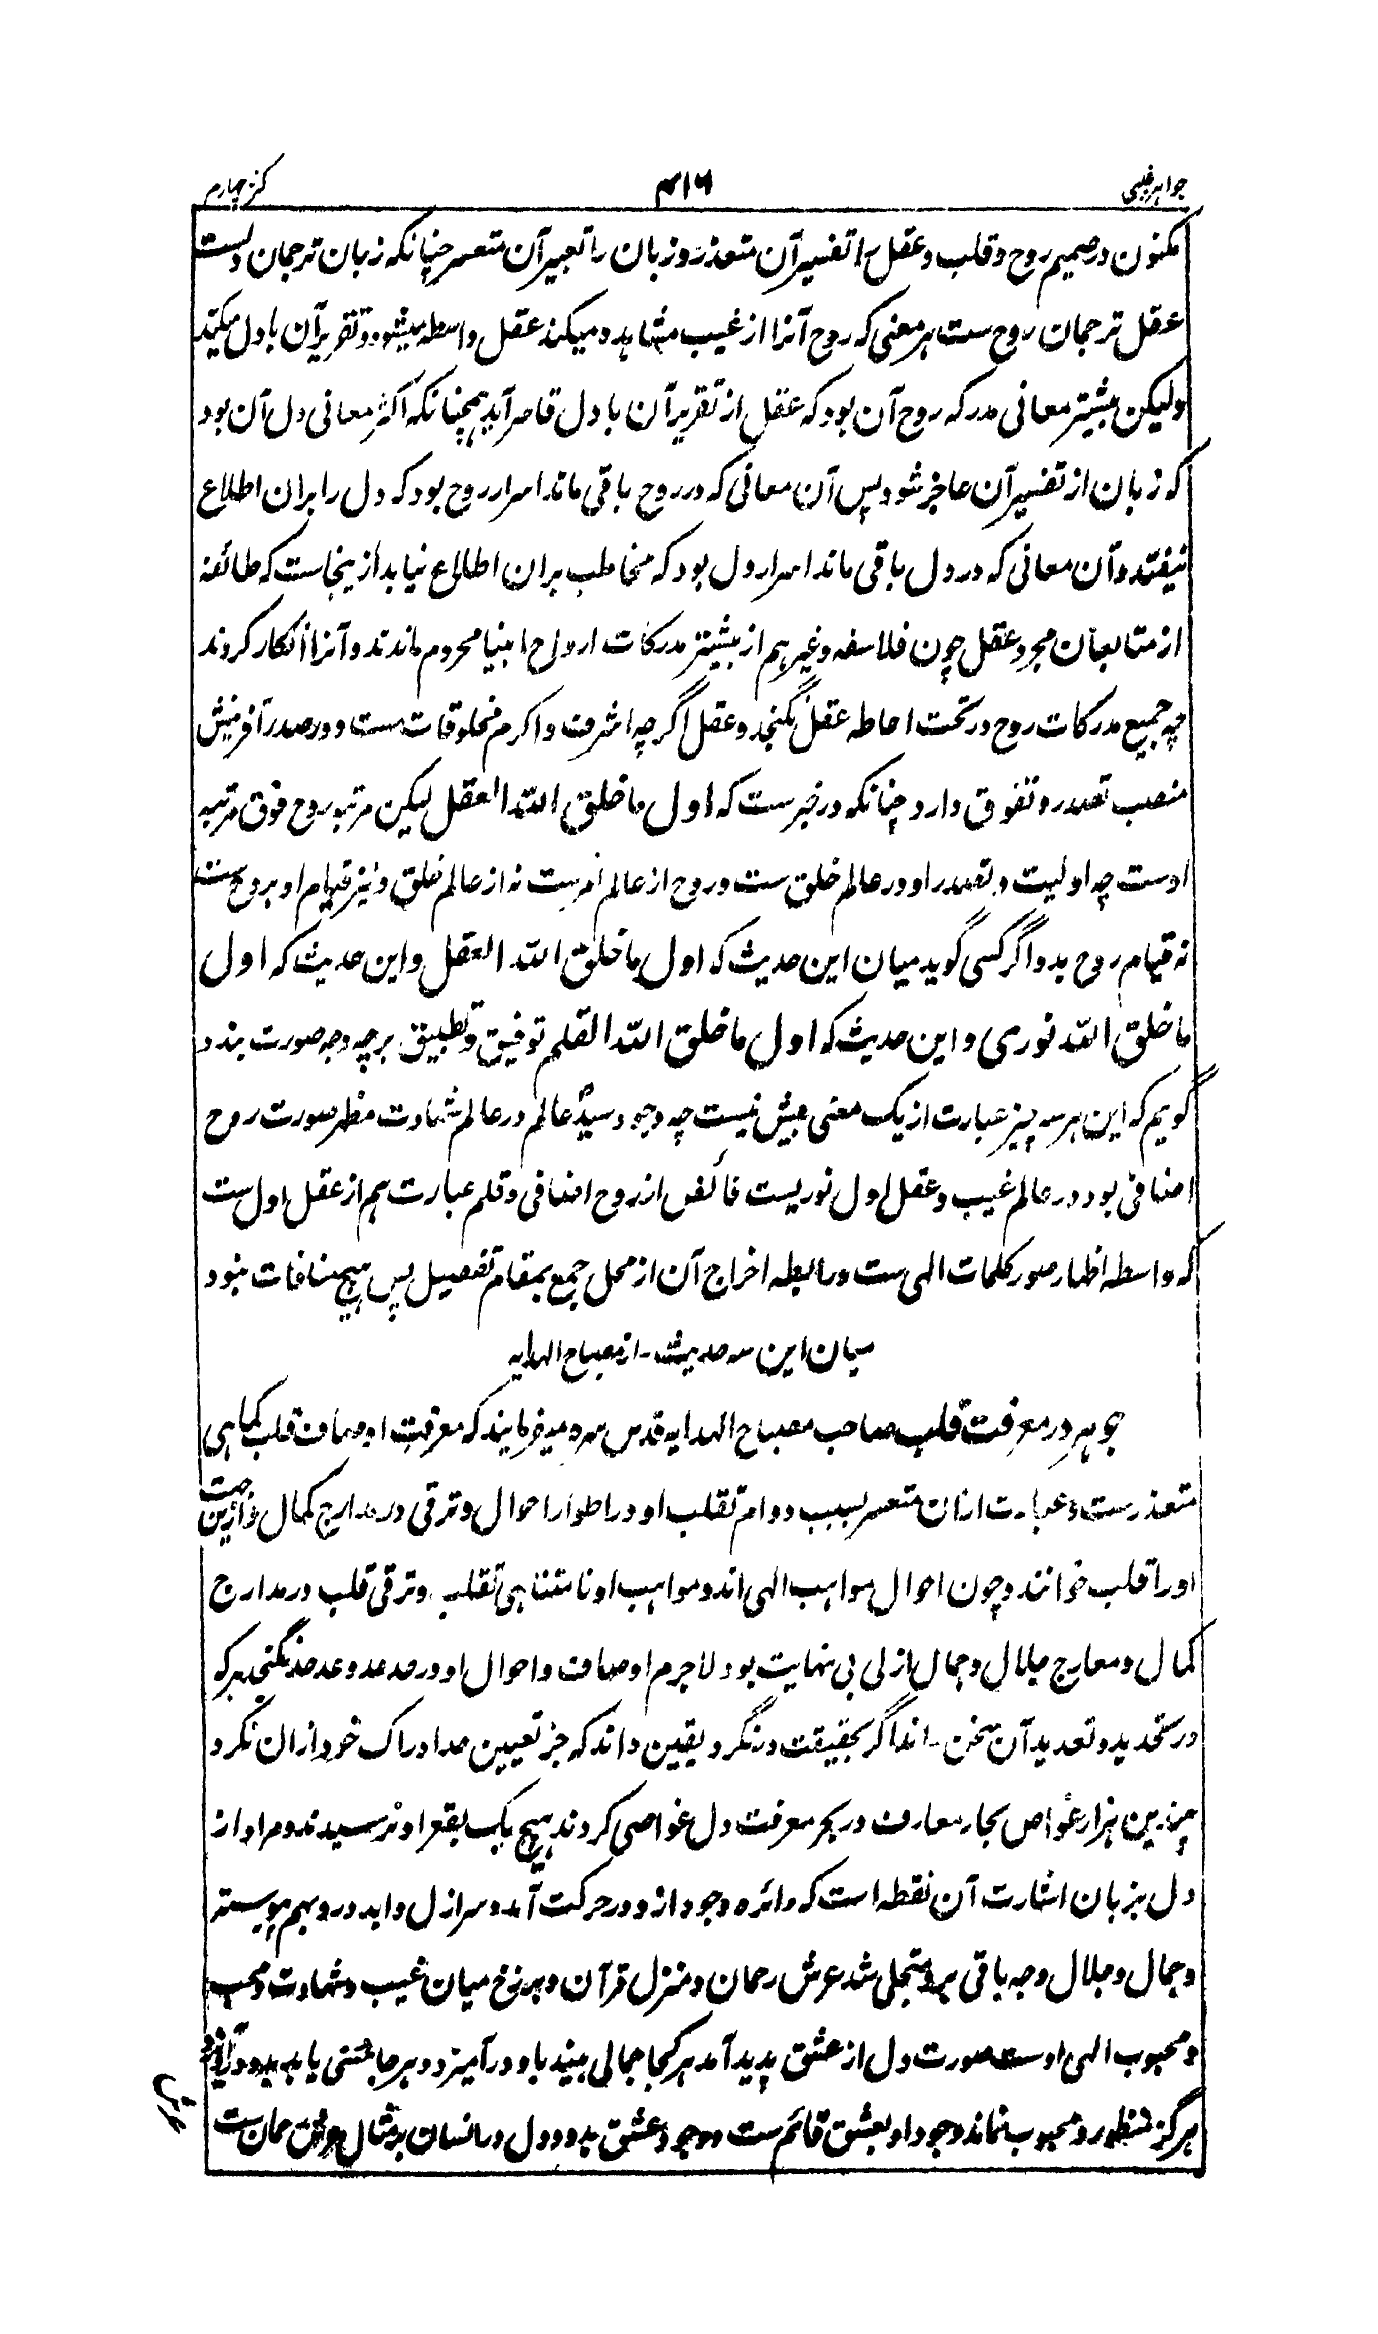 جواهر غیبی ۴۱۶ کنز چهارم
مکنون در صمیم روح و قلب و عقل را تفسیر آن متعذر و زبان را تعبیر آن متعسر چنانکه زبان ترجمان دلست
عقل ترجمان روح ست هر معنی که روح آنرا از غیب مشاهده میکند عقل واسطه میشود و تقریر آن با دل میکند
ولیکن بیشتر معانی مدرکه روح آن بود که عقل از تقریر آن با دل قاصر آید همچنانکه اکثر معانی دل آن بود
که زبان از تفسیر آن عاجز شود پس آن معانی که در روح باقی ماند اسرار روح بود که دل را بران اطلاع
نیفتد و آن معانی که در دل باقی ماند اسرار دل بود که مخاطب بران اطلاع نیابد ازینجاست که طائفه
از متابعان مجرد عقل چون فلاسفه و غیرهم از بیشتر مدرکات ارواح انبیا محروم ماندند و آنرا انکار کردند
چه جمیع مدرکات روح در تحت احاطه عقل نگنجد و عقل اگرچه اشرف و اکرم مخلوقات ست و در صدر آفرینش
منصب تصدر و تفوق دارد چنانکه در خبرست که اول ما خلق الله العقل لیکن مرتبه روح فوق مرتبه
اوست چه اولیت و تصدر او در عالم خلق ست و روح از عالم امرست نه از عالم خلق و نیز قیام او بروح ست
نه قیام روح بدو اگر کسی گوید میان این حدیث که اول ما خلق الله العقل و این حدیث که اول
ما خلق الله نوری و این حدیث که اول ما خلق الله القلم توفیق و تطبیق برچه وجه صورت بندد
گویم که این هر سه چیز عبارت از یک معنی بیش نیست چه وجود سید عالم در عالم شهادت مظهر صورت روح
اضافی بود در عالم غیب و عقل اول نوریست فائض از روح اضافی و قلم عبارت هم از عقل اول ست
که واسطه اظهار صور کلمات الهی ست و رابطه اخراج آن از محل جمع بمقام تفصیل پس هیچ منافات نبود
میان این سه حدیث - از مصباح الهدایه
جوهر در معرفت قلب صاحب مصباح الهدایه قدس سره میفرمایند که معرفت اوصاف قلب کماهی
متعذرست و عبارت ازان متعسر بسبب دوام تقلب او در اطوار احوال و ترقی در مدارج کمال و ازین جهت
او را قلب خوانند و چون احوال مواهب الهی اند و مواهب او نامتناهی تقلب و ترقی قلب در مدارج
کمال و معارج جلال و جمال ازلی بی نهایت بود لاجرم اوصاف و احوال او در حد عد و عد حد نگنجد هرکه
در تحدید و تعدید آن سخن راند اگر بحقیقت درنگرد یقین داند که جز تعیین حد ادراک خود ازان نکرد
چندین هزار غواص بحار معارف در بحر معرفت دل غواصی کردند هیچ یک بقعر او نرسیدند و مراد از
دل بزبان اشارت آن نقطه است که دائره وجود ازو در حرکت آمد و سر ازل و ابد درو بهم پیوسته
و جمال و جلال وجه باقی برو متجلی شد عرش رحمان و منزل قرآن و برزخ میان غیب و شهادت و محب
و محبوب الهی اوست صورت دل از عشق پدید آمد هرکجا جمالی بیند با او درآمیزد و هرجا حسنی یابد بدو درآویزد
هرگز بی منظور و محبوب نماند وجود او بعشق قائم ست و وجود عشق بدو و دل در انسان بر مثال عرش رحمان ست
عرش